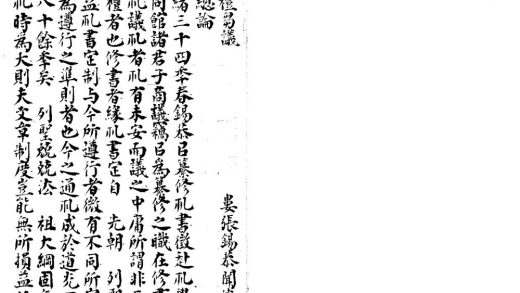 禮芻議
婁張錫恭聞
總論
緒三十四秊春錫恭㠯纂修礼書徵赴礼
同館諸君子商議竊㠯為纂修之職在修書
礼議礼者礼有未安而議之中庸所謂非
禮者也修書者緣礼書定自 先朝 列
益礼書定制与今所遵行者微有不同所
為遵行之準則者也今之通礼成於道光
八十餘秊矣 列聖兢兢法 祖大綱固
礼時為大則夫文章制度豈能無所損益